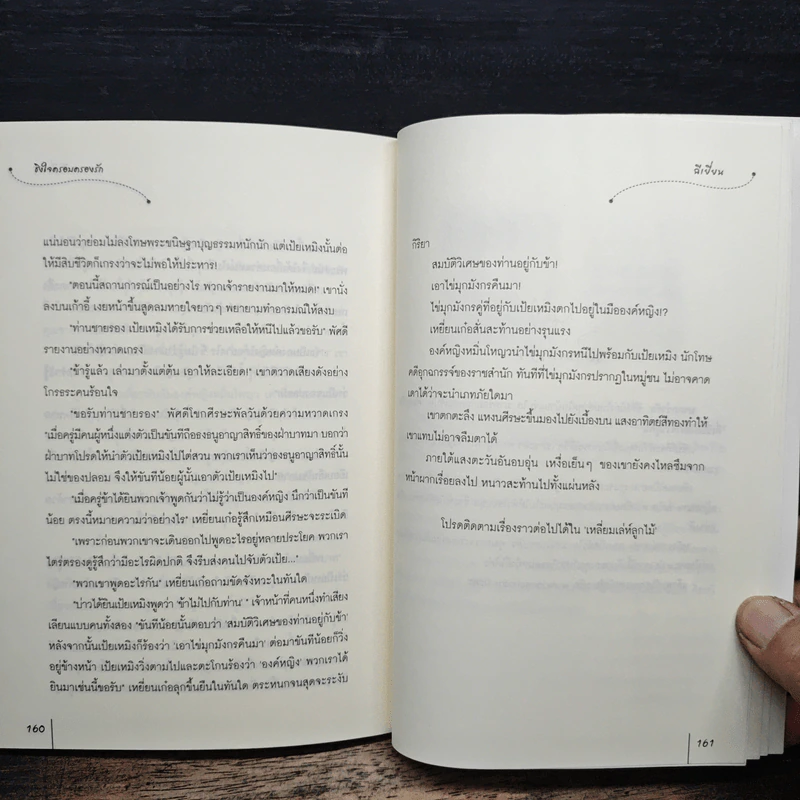 ชิงใจครอบครองรัก
แน่นอนว่าย่อมไม่ลงโทษพระขนิษฐาบุญธรรมหนักนัก แต่เป้ยเหมิงนั้นต่อ
ให้มีสิบชีวิตก็เกรงว่าจะไม่พอให้ประหาร!
"ตอนนี้สถานการณ์เป็นอย่างไร พวกเจ้ารายงานมาให้หมด!" เขานั่ง
ลงบนเก้าอี้ เงยหน้าขึ้นสูดลมหายใจยาวๆ พยายามทำอารมณ์ให้สงบ
"ท่านชายรอง เป้ยเหมิงได้รับการช่วยเหลือให้หนีไปแล้วขอรับ" พัศดี
รายงานอย่างหวาดเกรง
"ข้ารู้แล้ว เล่ามาตั้งแต่ต้น เอาให้ละเอียด!" เขาตวาดเสียงดังอย่าง
โกรธระคนร้อนใจ
"ขอรับท่านชายรอง" พัศดีโขกศีรษะพัลวันด้วยความหวาดเกรง
"เมื่อครู่มีคนผู้หนึ่งแต่งตัวเป็นขันทีถือธงธนูอาญาสิทธิ์ของฝ่าบาทมา บอกว่า
ฝ่าบาทโปรดให้นำตัวเป้ยเหมิงไปไต่สวน พวกเราเห็นว่าธงธนูอาญาสิทธิ์นั้น
ไม่ใช่ของปลอม จึงให้ขันทีน้อยผู้นั้นเอาตัวเป้ยเหมิงไป"
"เมื่อครู่ข้าได้ยินพวกเจ้าพูดกันว่าไม่รู้ว่าเป็นองค์หญิง นึกว่าเป็นขันที
น้อย ตรงนี้หมายความว่าอย่างไร" เหยี่ยนเก๋อรู้สึกเหมือนศีรษะจะระเบิด
"เพราะก่อนพวกเขาจะเดินออกไปพูดอะไรอยู่หลายประโยค พวกเรา
ไตร่ตรองดูรู้สึกว่ามีอะไรผิดปกติ จึงรีบส่งคนไปจับตัวเป้ย..."
"พวกเขาพูดอะไรกัน" เหยี่ยนเก๋อถามขัดจังหวะในทันใด
"บ่าวได้ยินเป้ยเหมิงพูดว่า 'ข้าไม่ไปกับท่าน' " เจ้าหน้าที่คนหนึ่งทำเสียง
เลียนแบบคนทั้งสอง "ขันทีน้อยนั้นตอบว่า 'สมบัติวิเศษของท่านอยู่กับข้า'
หลังจากนั้นเป้ยเหมิงก็ร้องว่า 'เอาไข่มุกมังกรคืนมา' ต่อมาขันทีน้อยก็วิ่ง
อยู่ข้างหน้า เป้ยเหมิงวิ่งตามไปและตะโกนร้องว่า 'องค์หญิง' พวกเราได้
ยินมาเช่นนี้ขอรับ" เหยี่ยนเก๋อลุกขึ้นยืนในทันใด ตระหนกจนสุดจะระงับ
160
ฉีเยี่ยน
กิริยา
สมบัติวิเศษของท่านอยู่กับข้า!
เอาไข่มุกมังกรคืนมา!
ไข่มุกมังกรคู่ที่อยู่กับเป้ยเหมิงตกไปอยู่ในมือองค์หญิง!?
เหยี่ยนเก๋อสั่นสะท้านอย่างรุนแรง
องค์หญิงหมิ่นโหญวนำไข่มุกมังกรหนีไปพร้อมกับเป้ยเหมิง นักโทษ
คดีอุกฉกรรจ์ของราชสำนัก ทันทีที่ไข่มุกมังกรปรากฏในหมู่ชน ไม่อาจคาด
เดาได้ว่าจะนำเภทภัยใดมา
เขาตกตะลึง แหงนศีรษะขึ้นมองไปยังเบื้องบน แสงอาทิตย์สีทองทำให้
เขาแทบไม่อาจลืมตาได้
ภายใต้แสงตะวันอันอบอุ่น เหงื่อเย็นๆ ของเขายังคงไหลซึมจาก
หน้าผากเรื่อยลงไป หนาวสะท้านไปทั้งแผ่นหลัง
โปรดติดตามเรื่องราวต่อไปได้ใน 'เหลี่ยมเล่ห์ลูกไม้'
161